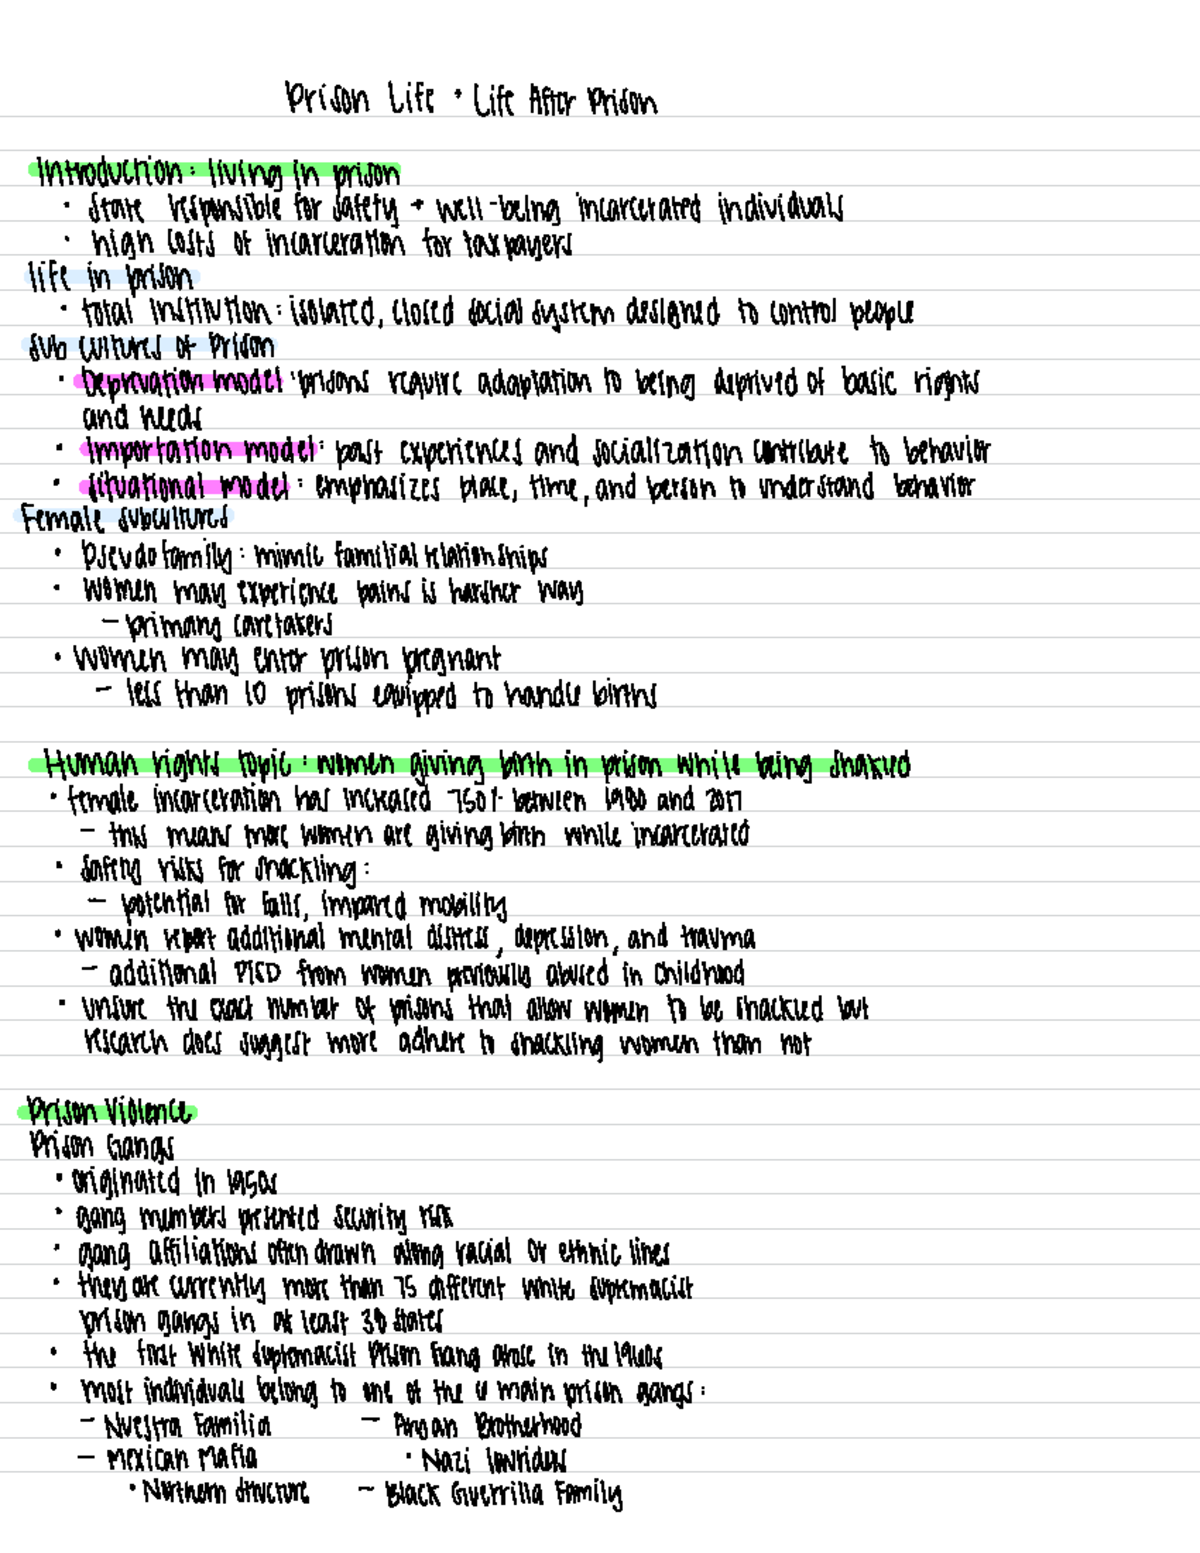 Prison Life + Life After Prison
Introduction: living in prison
• State responsible for safety + well-being incarcerated individuals
• high costs of incarceration for taxpayers
life in prison
• total institution: isolated, closed social system designed to control people
Sub cultures of Prison
• Deprivation model: prisons require adaptation to being deprived of basic rights
and needs
• importation model: past experiences and socialization contribute to behavior
• situational model: emphasizes place, time, and person to understand behavior
Female subcultures
• Pseudofamily: mimic familial relationships
• Women may experience pains is harsher way
– primary caretakers
• Women may enter prison pregnant
– less than 10 prisons equipped to handle births
Human rights topic: women giving birth in prison while being shackled
• female incarceration has increased 750% between 1980 and 2017
– this means more women are giving birth while incarcerated
• Safety risks for shackling:
– potential for falls, impared mobility
• women report additional mental distress, depression, and trauma
– additional PTSD from women previously abused in childhood
• unsure the exact number of prisons that allow women to be shackled but
research does suggest more adhere to shackling women than not
Prison Violence
Prison Gangs
• originated in 1950s
• gang members presented security risk
• gang affiliations often drawn along racial or ethnic lines
• they are currently more than 75 different white supremacist
prison gangs in at least 38 states
• the first White Supremacist Prison Gang arose in the 1960s
• most individuals belong to one of the 4 main prison gangs:
– Nuestra Familia – Aryan Brotherhood
– Mexican Mafia • Nazi lowriders
• Northern structure – Black Guerrilla Family